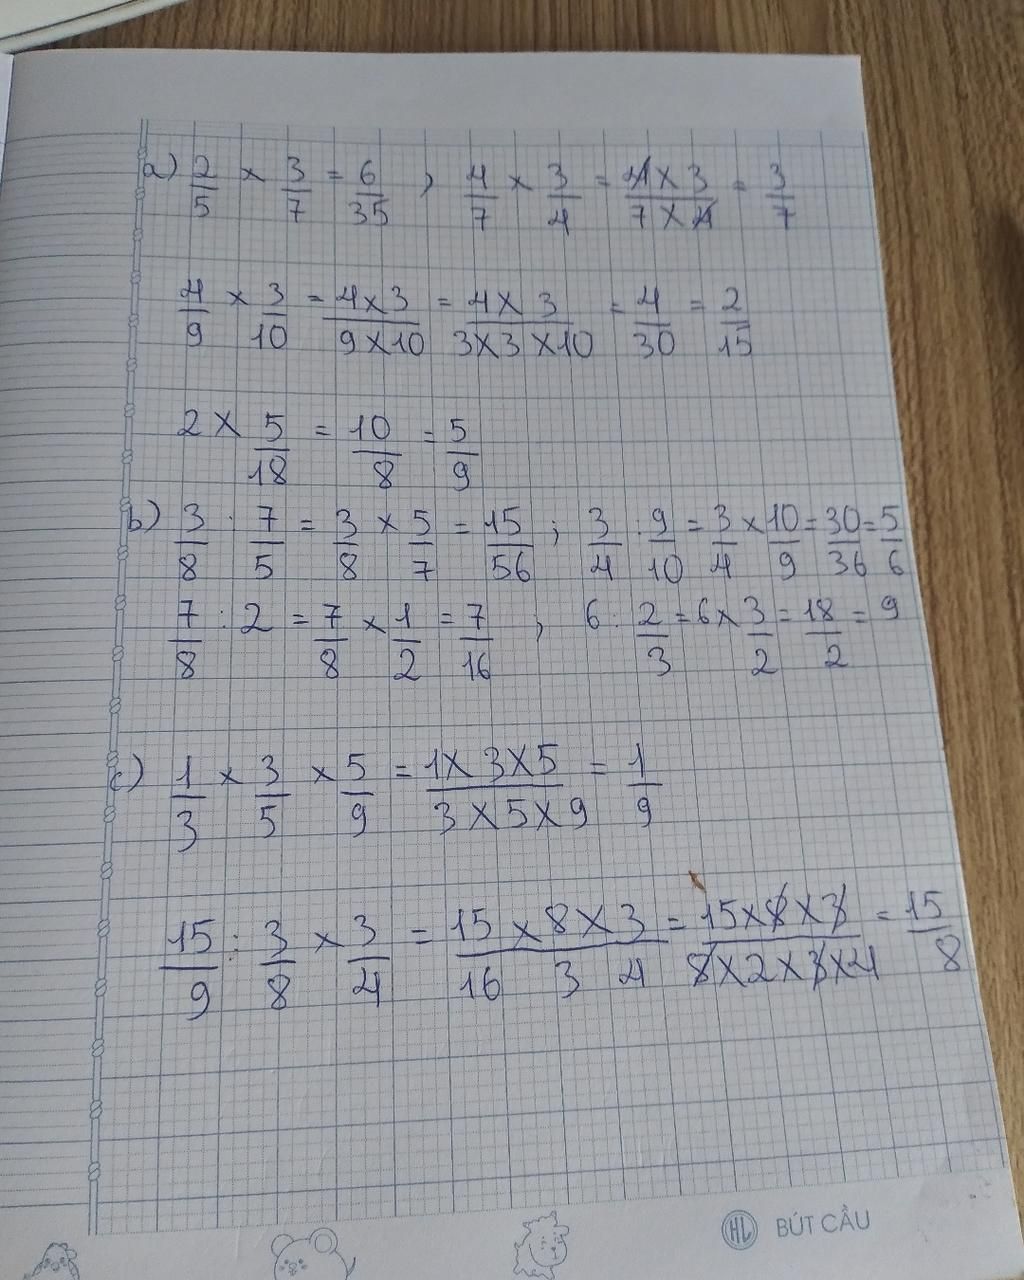 a) 2/5 × 3/7 = 6/35 , 4/7 × 3/4 = 4×3/7×4 = 3/7
4/9 × 3/10 = 4×3/9×10 = 4×3/3×3×10 = 4/30 = 2/15
2 × 5/18 = 10/8 = 5/9
b) 3/8 : 7/5 = 3/8 × 5/7 = 15/56 ; 3/4 : 9/10 = 3/4 × 10/9 = 30/36 = 5/6
7/8 : 2 = 7/8 × 1/2 = 7/16 , 6 : 2/3 = 6 × 3/2 = 18/2 = 9
c) 1/3 × 3/5 × 5/9 = 1×3×5/3×5×9 = 1/9
15/9 : 3/8 × 3/4 = 15×8×3/16 3 4 = 15×8×3/8×2×3×4 = 15/8
HL BÚT CẦU